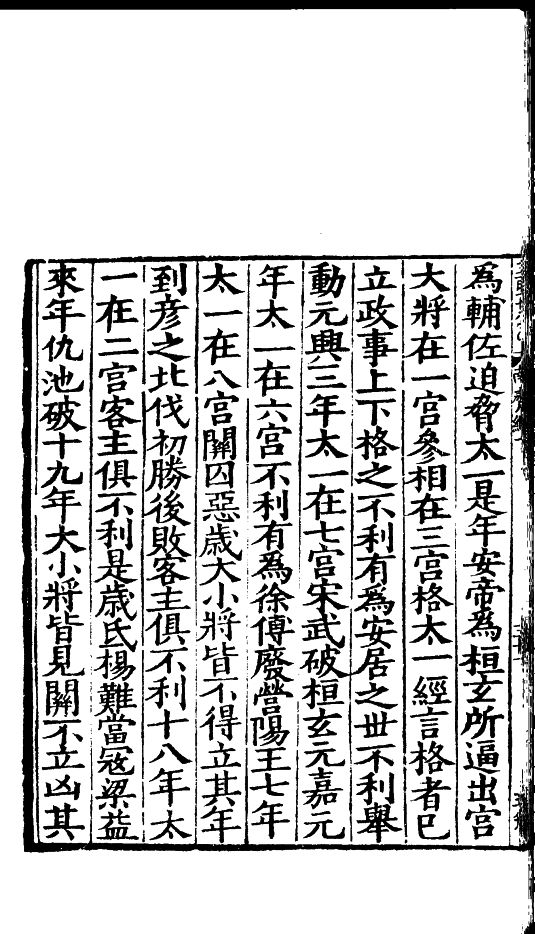 爲輔佐迫脅太一是年安帝爲桓玄所逼出宮
大將在一宮參相在三宮格太一經言格者已
立政事上下格之不利有爲安居之世不利舉
動元興三年太一在七宮宋武破桓玄元嘉元
年太一在六宮不利有爲徐傅廢營陽王七年
太一在八宮關囚惡歲大小將皆不得立其年
到彦之北伐初勝後敗客主俱不利十八年太
一在二宮客主俱不利是歲氐楊難當寇梁益
來年仇池破十九年大小將皆見關不立凶其